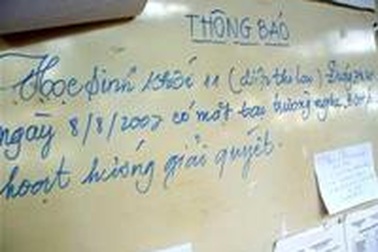 THÔNG BÁO
Học sinh khối 11 (diện thi lại) Đúng
ngày 8/8/2007 có mặt tại trường nghe
hoạt hướng giải quyết.